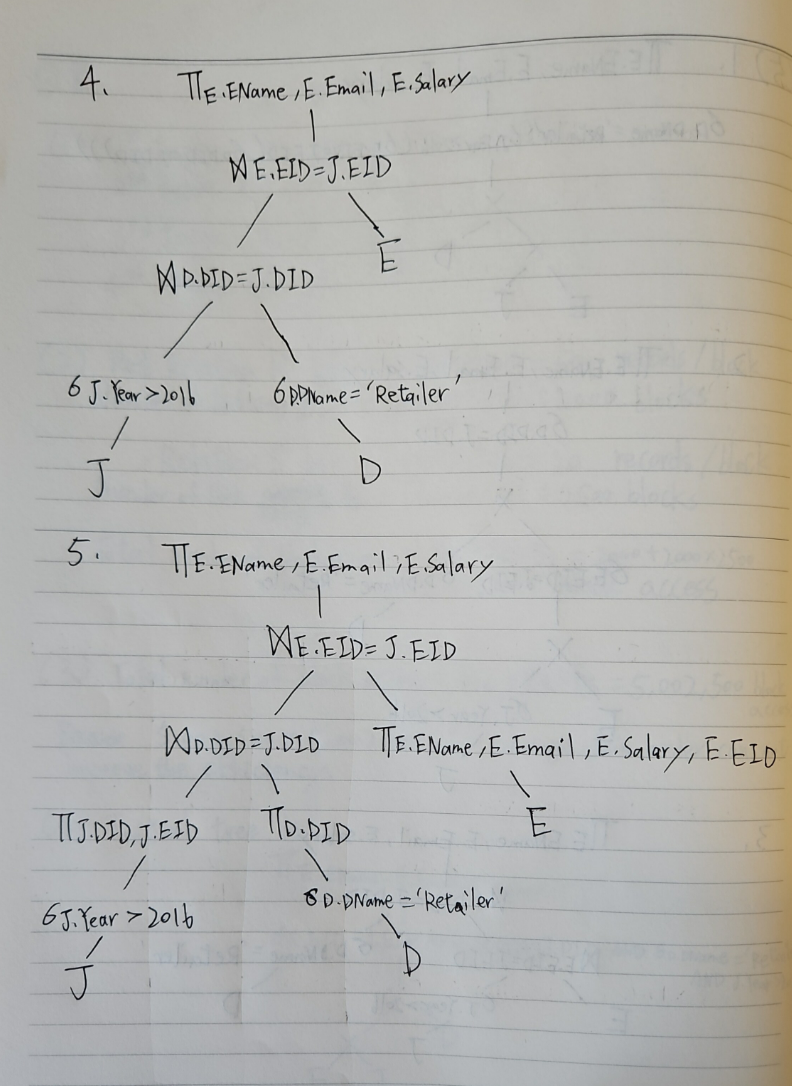 4. ΠE.EName, E.Email, E.Salary
⋈E.EID=J.EID
E
⋈D.DID=J.DID
6 J.Year>2016 6D.DName='Retailer'
J D
5. ΠE.EName, E.Email, E.Salary
⋈E.EID= J.EID
⋈D.DID=J.DID ΠE.EName, E.Email, E.Salary, E.EID
ΠJ.DID, J.EID ΠD.DID E
6D.DName='Retailer'
6J.Year>2016
J D